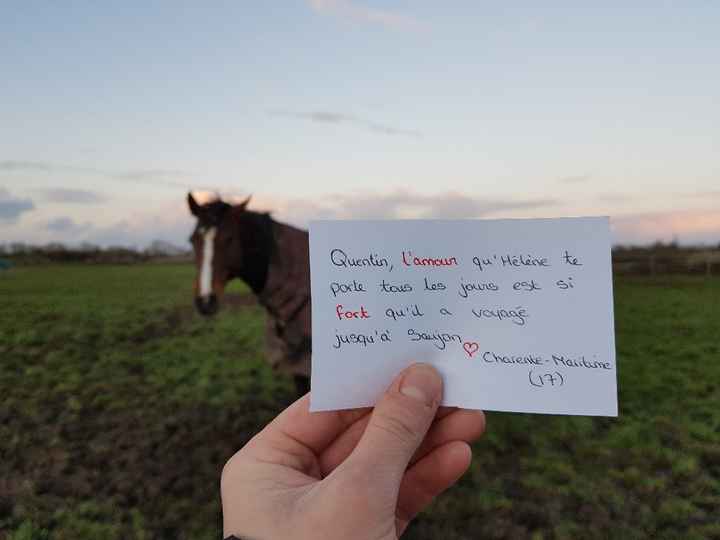 Quentin, l'amour qu'Hélène te
porte tous les jours est si
fort qu'il a voyagé
jusqu'à Saujon
Charente-Maritime
(17)